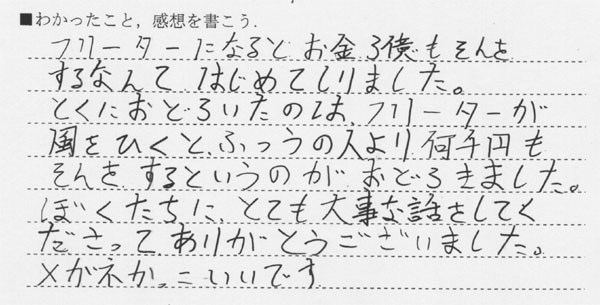 ■わかったこと，感想を書こう．
フリーターになるとお金3億もそんを
するなんてはじめてしりました。
とくにおどろいたのは、フリーターが
風をひくと、ふつうの人より何千円も
そんをするというのがおどろきました。
ぼくたちに、とても大事な話をしてく
ださって、ありがとうございました。
メガネかっこいいです